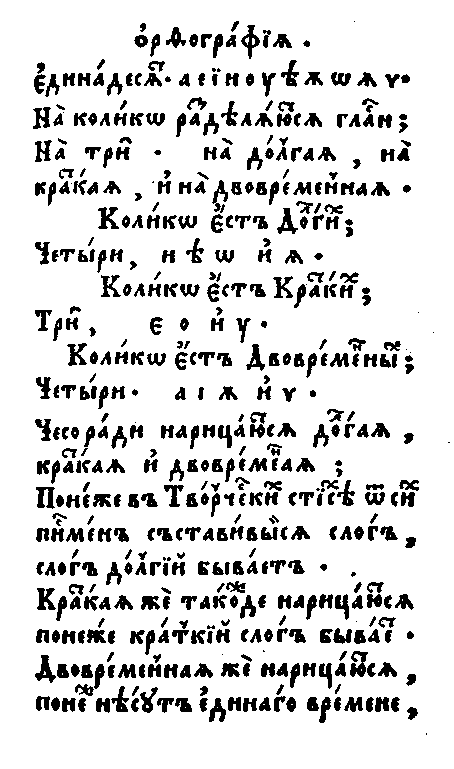 Ѻ҆рѳогра́фїѧ .
є҆дина́десѧⷮ · а е ї и о у ѣ ѧ ѡ ѧ ѵ ·
На̀ коли́кѡ раⷥдѣлѧ́юⷮсѧ гла́ⷭн ;
На̀ трѝ · на̀ до́лгаѧ , на̀
кра́ⷮкаѧ , и҆ на̀ двовре́меннаѧ ·
Коли́кѡ є҆́стъ До́лгиⷯ ;
Четы́ри , и ѣ ѡ и҆ ѧ ·
Коли́кѡ є҆́стъ Кра́ⷮкиⷯ ;
Трѝ , є о и҆ у ·
Коли́кѡ є҆́стъ Двовре́менныⷯ ;
Четы́ри · а ı ѧ и҆ ѵ ·
Чесо ра́ди нарица́юⷮсѧ до́лгаѧ ,
кра́ⷮкаѧ и҆ двовре́меⷩнаѧ ;
Поне́же въ Тво́рческиⷯ стїсѣⷯ ѿ сиⷯ
пи́сменъ съста́вивыйсѧ слогъ ,
слогъ до́лгїй быва́етъ ·
Кра́ⷮкаѧ жѐ тако́ⷤде нарица́юⷮсѧ
поне́же кра́ткїй слогъ быва́еⷮ ·
Двовре́меннаѧ жѐ нарица́юⷮсѧ ,
понеⷤ нѣ́сꙋтъ є҆дина́го вре́мене ,